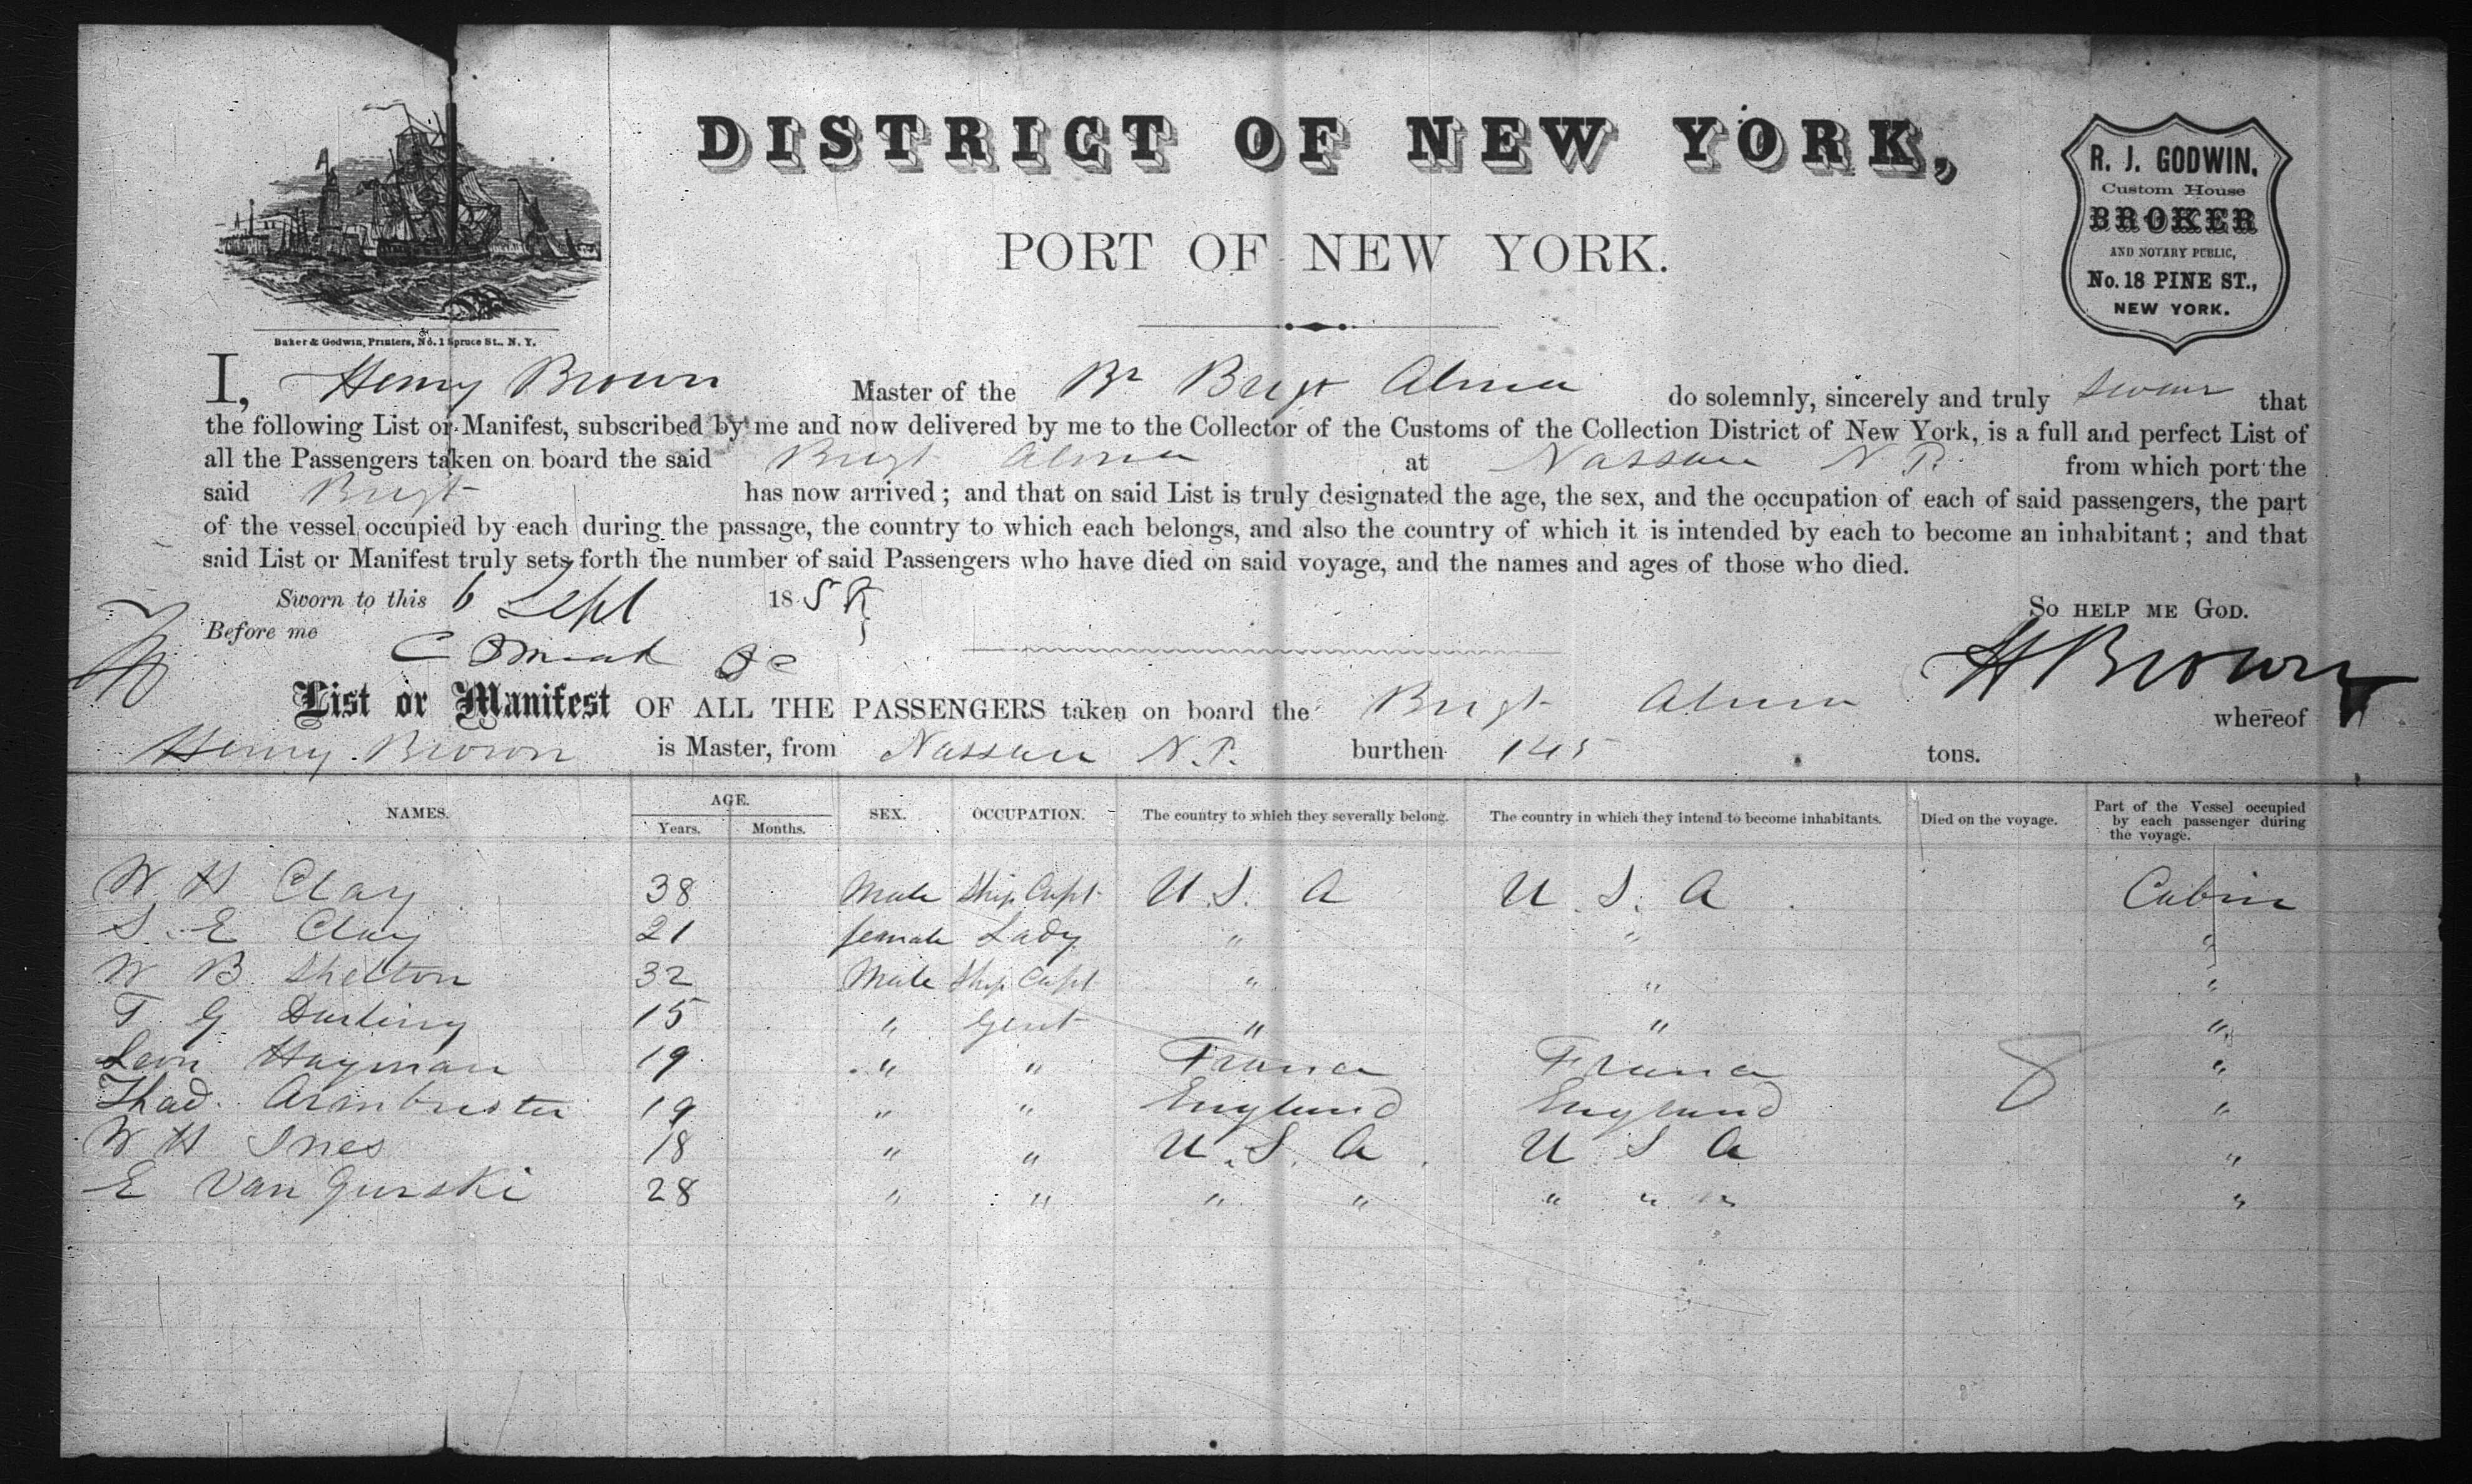 DISTRICT OF NEW YORK,
PORT OF NEW YORK.
R. J. GODWIN,
Custom House
BROKER
AND NOTARY PUBLIC,
No. 18 PINE ST.,
NEW YORK.
Baker & Godwin, Printers, No. 1 Spruce St., N. Y.
I, Henry Brown Master of the Br Brigt Alma do solemnly, sincerely and truly swear that
the following List or Manifest, subscribed by me and now delivered by me to the Collector of the Customs of the Collection District of New York, is a full and perfect List of
all the Passengers taken on board the said Brigt Alma at Nassau N. P. from which port the
said Brigt has now arrived; and that on said List is truly designated the age, the sex, and the occupation of each of said passengers, the part
of the vessel occupied by each during the passage, the country to which each belongs, and also the country of which it is intended by each to become an inhabitant; and that
said List or Manifest truly sets forth the number of said Passengers who have died on said voyage, and the names and ages of those who died.
Sworn to this 6 Sept 185
So help me God.
Before me
H Brown
List or Manifest OF ALL THE PASSENGERS taken on board the Brigt Alma whereof
Henry Brown is Master, from Nassau N. P. burthen 145 tons.
NAMES. AGE. Years. Months. SEX. OCCUPATION. The country to which they severally belong. The country in which they intend to become inhabitants. Died on the voyage. Part of the Vessel occupied by each passenger during the voyage.
W H Clay 38 Male Ship Capt U. S. A U. S. A Cabin
S. E Clay 21 female Lady " " "
W B Shelton 32 Male Ship Capt " " "
T G Darling 15 " Gent " " "
Leon Hayman 19 " " France France "
Thad. Armbrister 19 " " England England "
W H Ines 18 " " U. S. A U S A "
E Van Gurski 28 " " " " " " " "
8